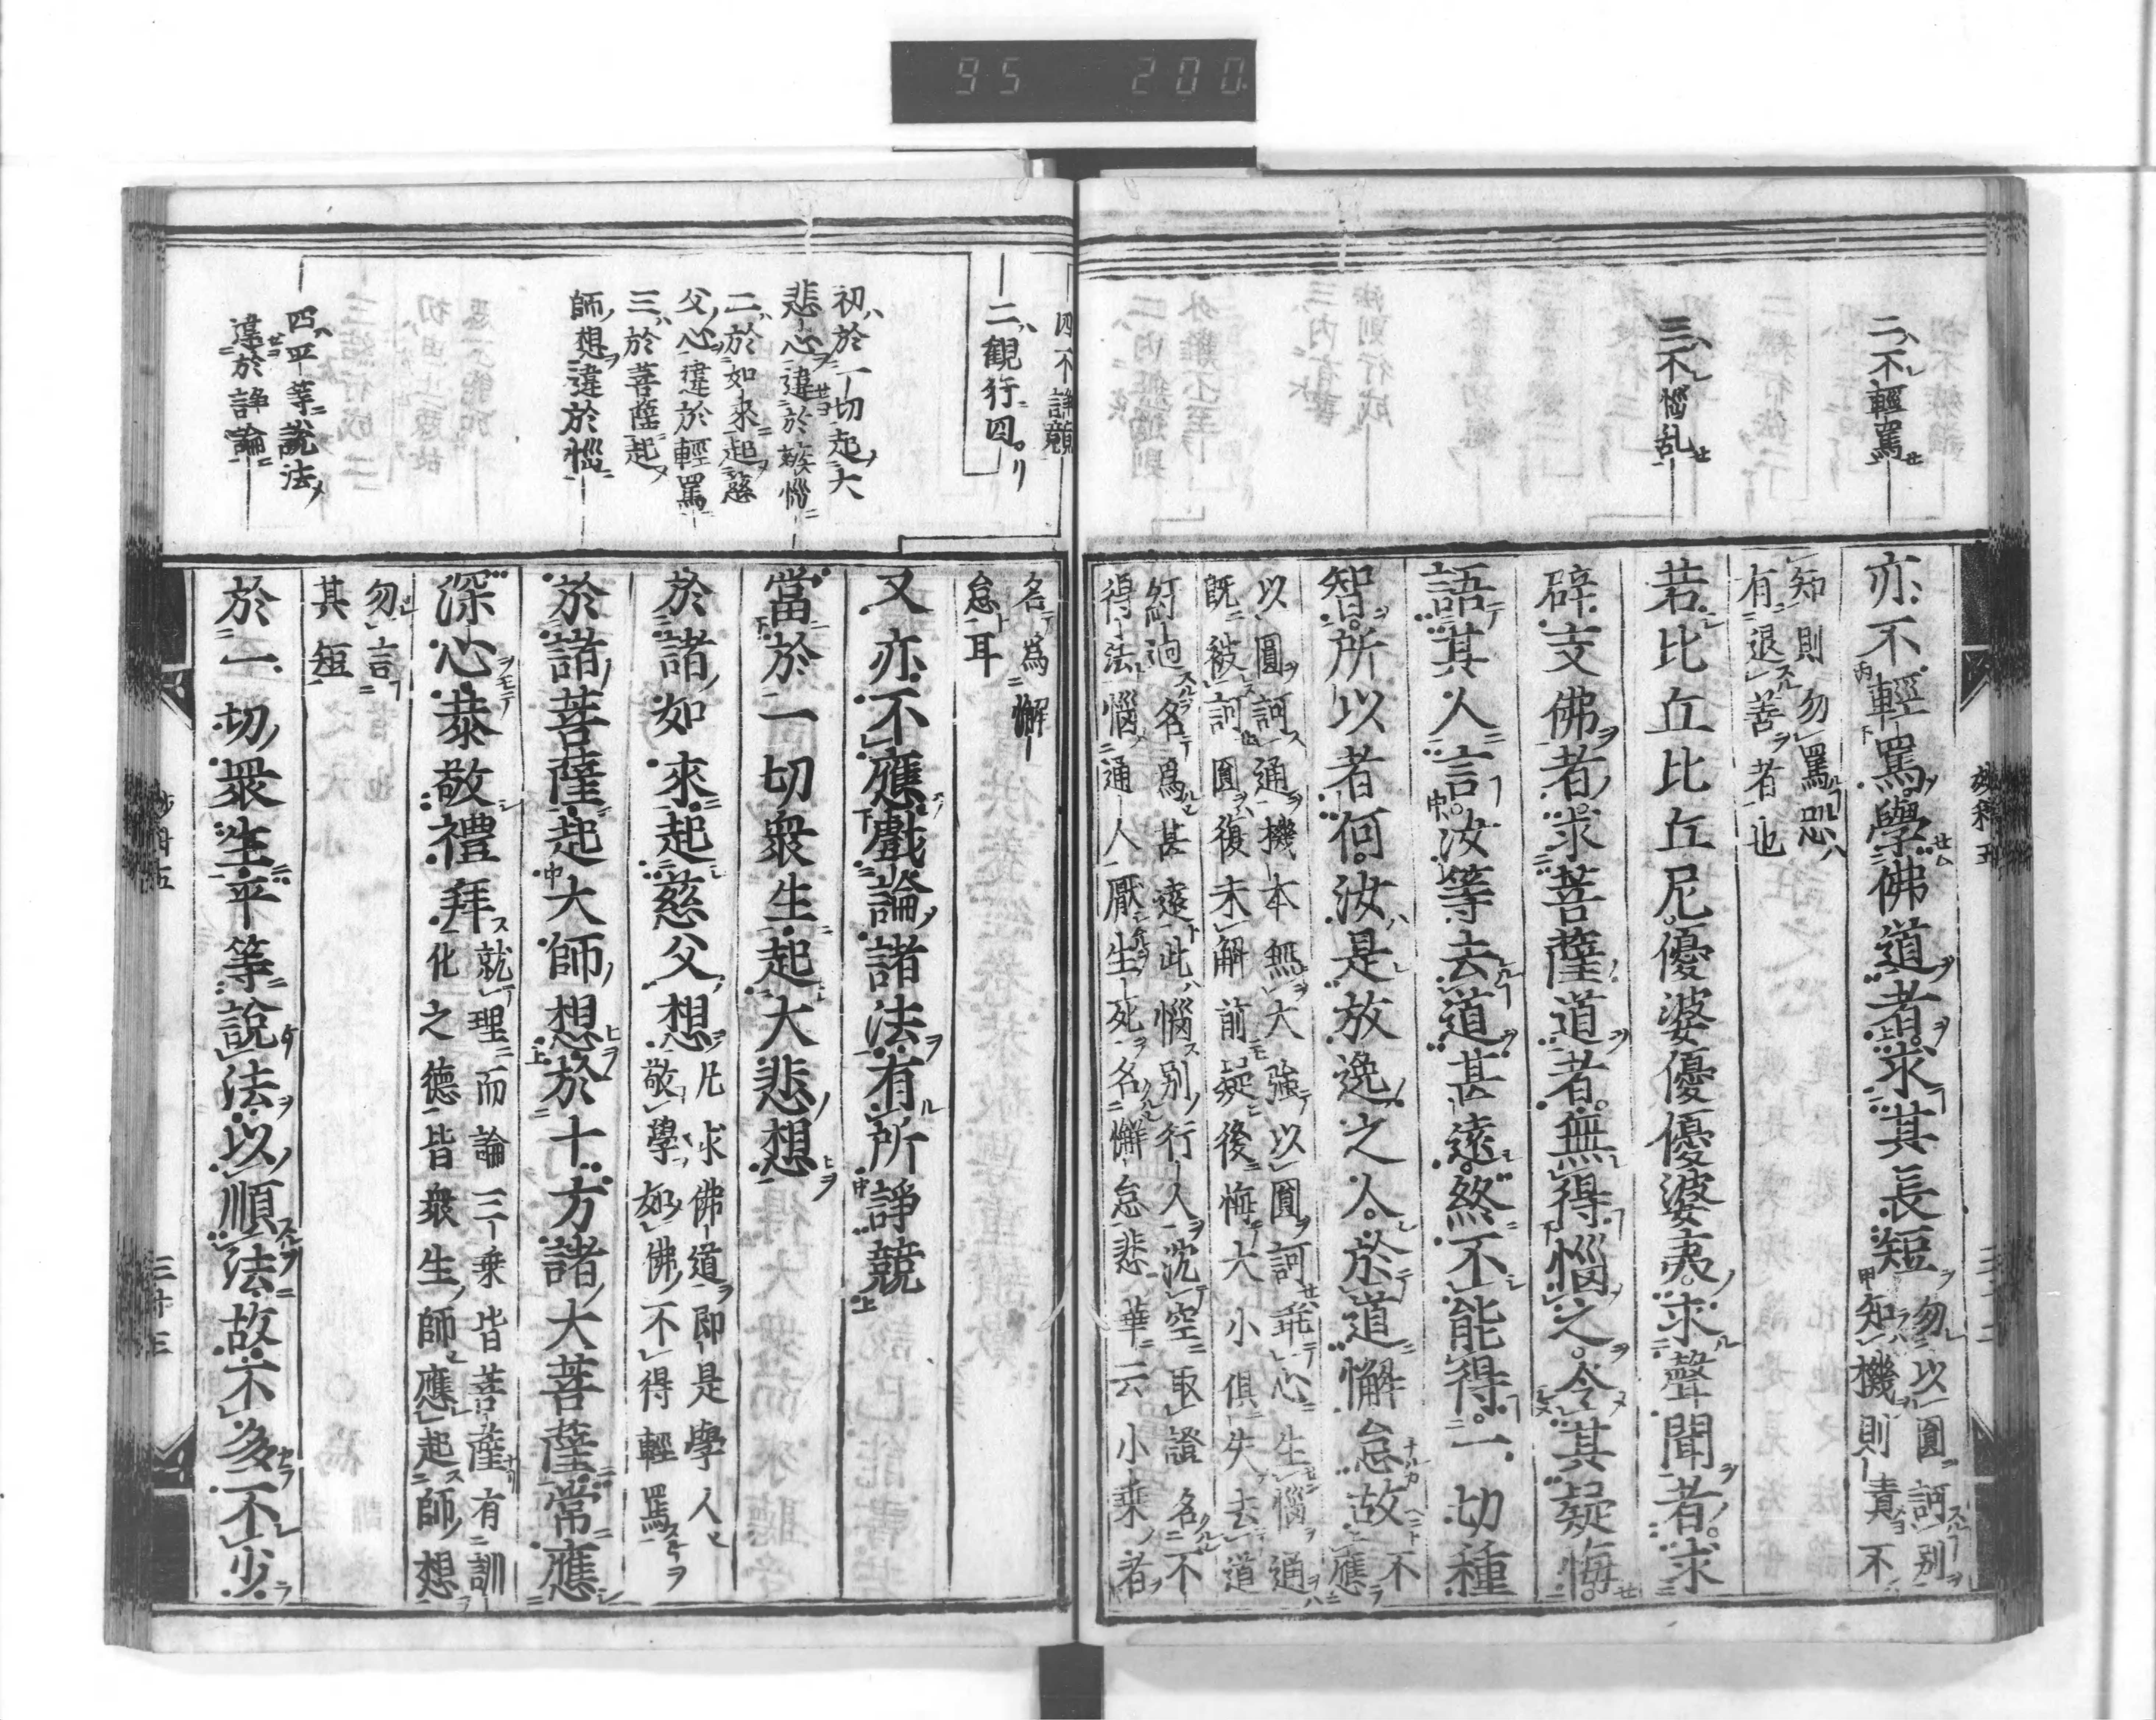 95 200
二不輕罵
三不惱乱
亦不輕罵學佛道者求其長短
勿以圓訶別
知機則責不
知則勿罵恐
有退善者也
若比丘比丘尼優婆塞優婆夷求聲聞者求
辟支佛者求菩薩道者無得惱之令其疑悔
語其人言汝等去道甚遠終不能得一切種
智所以者何汝是放逸之人於道懈怠故
不
應
以圓訶通機本無大強以圓訶乖心生惱通
既被訶圓復未解前疑後悔大小俱失去道
名為甚遠此惱別行人沈空取證名不
得法惱通人厭生死名懈怠悲華云小乘者
三十二
四不諍競
二觀行四
初於一切起大
悲心違於嫉惱
二於如來起慈
父心違於輕罵
三於菩薩起
師想違於惱
四平等說法
違於諍論
名為懈
怠耳
又亦不應戲論諸法有所諍競
當於一切眾生起大悲想
於諸如來起慈父想
凡求佛道即是學人
敬學如佛不得輕罵
於諸菩薩起大師想於十方諸大菩薩常應
深心恭敬禮拜
就理而論三乘皆菩薩有訓
化之德皆眾生師應起師想
勿言
其短
於一切眾生平等說法以順法故不多不少
三十三